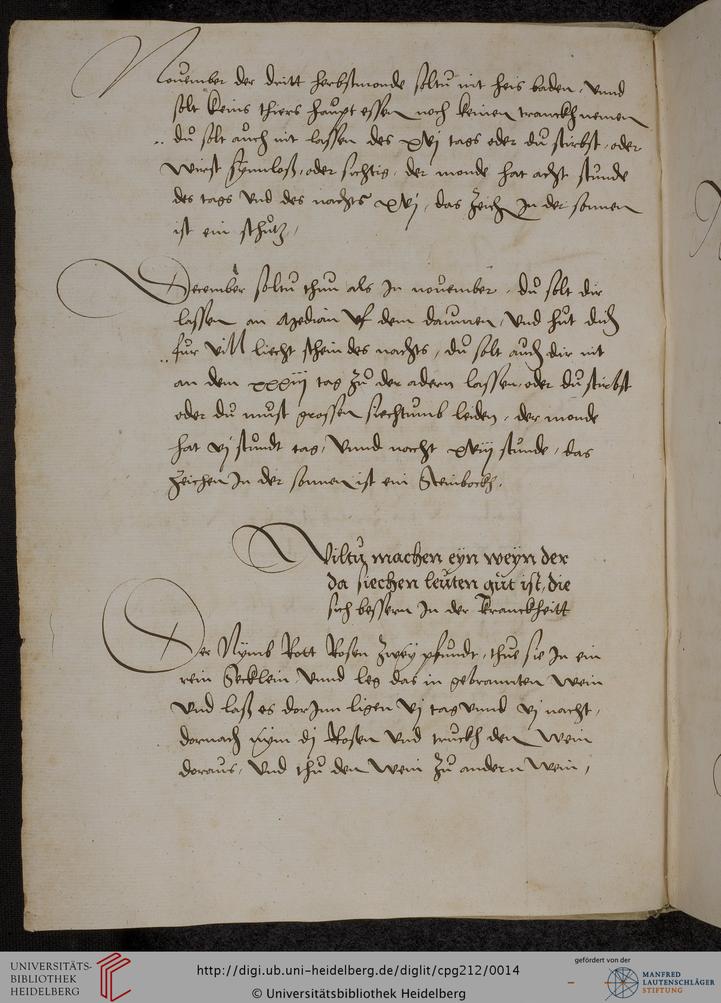 November der dritt herbstmonde soltu nit heis baden, vnnd
solt keins thiers haupt essen noch keinen tranckh nemen
du solt auch nit lassen des xvj tags oder du stirbst, oder
wirst synnloß, oder suchtig, der monde hat acht stunde
des tags vnd des nachts xvj, das zeich In der sonnen
ist ein schutz,
December soltu thun als In nouember, du solt dir
lassen an Median vf dem daumen, vnd hut dich
fur vill liecht schein des nachts, du solt auch dir nit
an dem tag zu der adern lassen, oder du stirbst
oder du must grossen siechtumb leiden, der monde
hat vj stundt tag, vnnd nacht xviij stunde, das
zeichen In der sonnen ist ein Steinbockh,
Wiltu machen eyn weyn der
da siechen leuten gut ist, die
sich bessern In der kranckheitt
Der Nymb Rott Rosen zwey pfundt, thue sie In ein
rein Secklein vnnd leg das in gebrannten wein
vnd laß es dor Inn ligen vj tag vnnd vj nacht,
dornach nym di Rosen vnd truckh den wein
doraus, vnd thu den wein zu andern wein,
UNIVERSITÄTS-
BIBLIOTHEK
HEIDELBERG
http://digi.ub.uni-heidelberg.de/diglit/cpg212/0014
© Universitätsbibliothek Heidelberg
gefördert von der
MANFRED
LAUTENSCHLÄGER
STIFTUNG